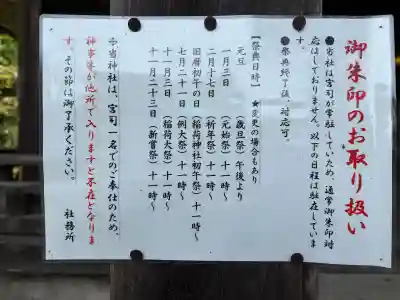 御朱印のお取り扱い
●当社は宮司が常駐していため、通常御朱印対
応はしておりません。以下の日程は駐在していま
す。
●祭典終了後、対応可。
【祭典日時】 ★変更の場合もあり
元旦 (歳旦祭)午後より
一月三日 (元始祭)十一時~
二月十七日 (祈年祭)十一時~
旧暦初午の日(稲荷神社初午祭)十一時~
七月二十一日(例大祭)十一時~
十一月三日 (稲荷大祭)十一時~
十一月二十三日(新嘗祭)十一時~
※当神社は、宮司一名でのご奉仕のため、
神事等が他所で入りますと不在となりま
す。その節は御了承ください。
社務所